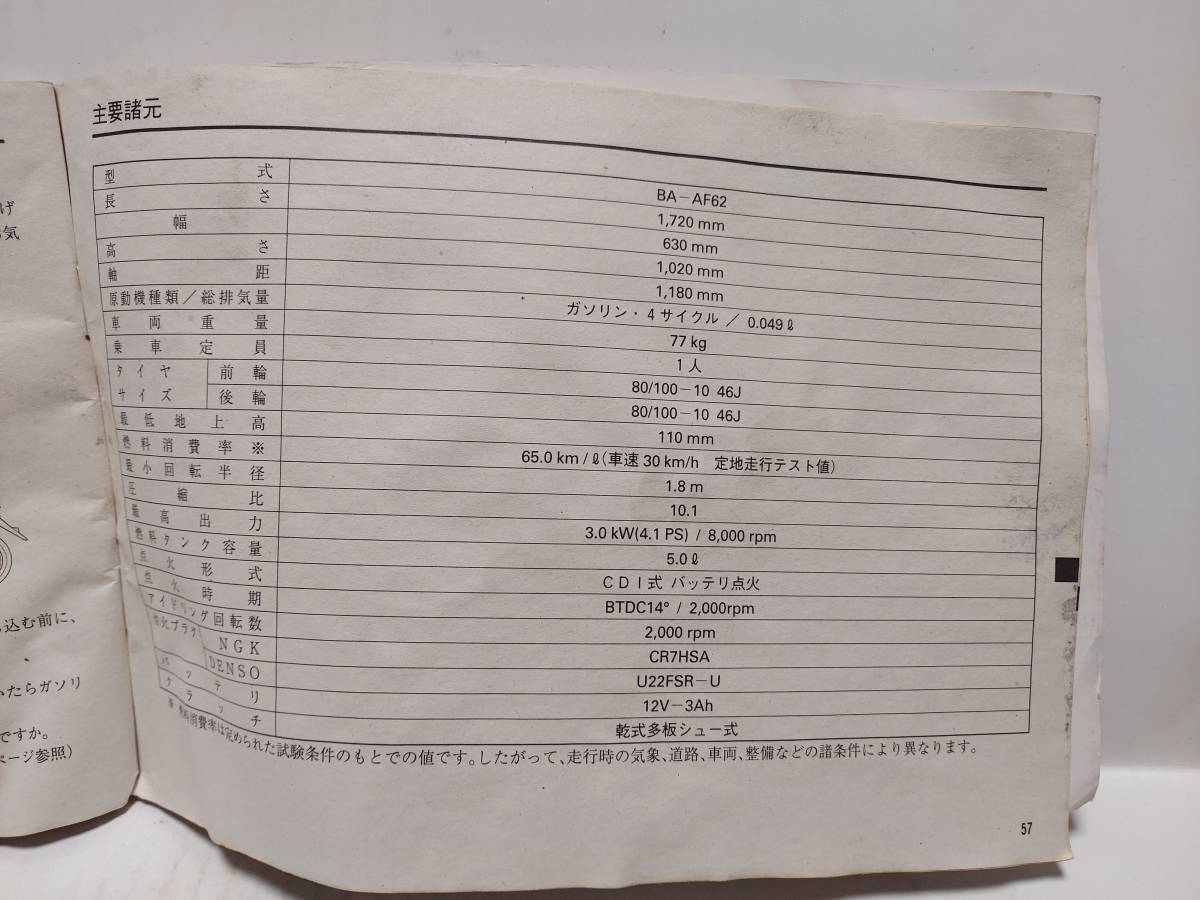 げ
気
込む前に、
いたらガソリ
ですか。
ページ参照)
主要諸元
型式 BA-AF62
長さ 1,720 mm
幅 630 mm
高さ 1,020 mm
軸距 1,180 mm
原動機種類／総排気量 ガソリン・4サイクル / 0.049ℓ
車両重量 77kg
乗車定員 1人
タイヤサイズ 前輪 80/100-10 46J
後輪 80/100-10 46J
最低地上高 110 mm
燃料消費率※ 65.0 km/ℓ(車速30 km/h 定地走行テスト値)
最小回転半径 1.8 m
圧縮比 10.1
最高出力 3.0 kW(4.1 PS) / 8,000 rpm
燃料タンク容量 5.0ℓ
点火形式 CDI式 バッテリ点火
点火時期 BTDC14° / 2,000rpm
アイドリング回転数 2,000 rpm
点火プラグ NGK CR7HSA
DENSO U22FSR-U
バッテリ 12V-3Ah
クラッチ 乾式多板シュー式
※ 燃料消費率は定められた試験条件のもとでの値です。したがって、走行時の気象、道路、車両、整備などの諸条件により異なります。
57